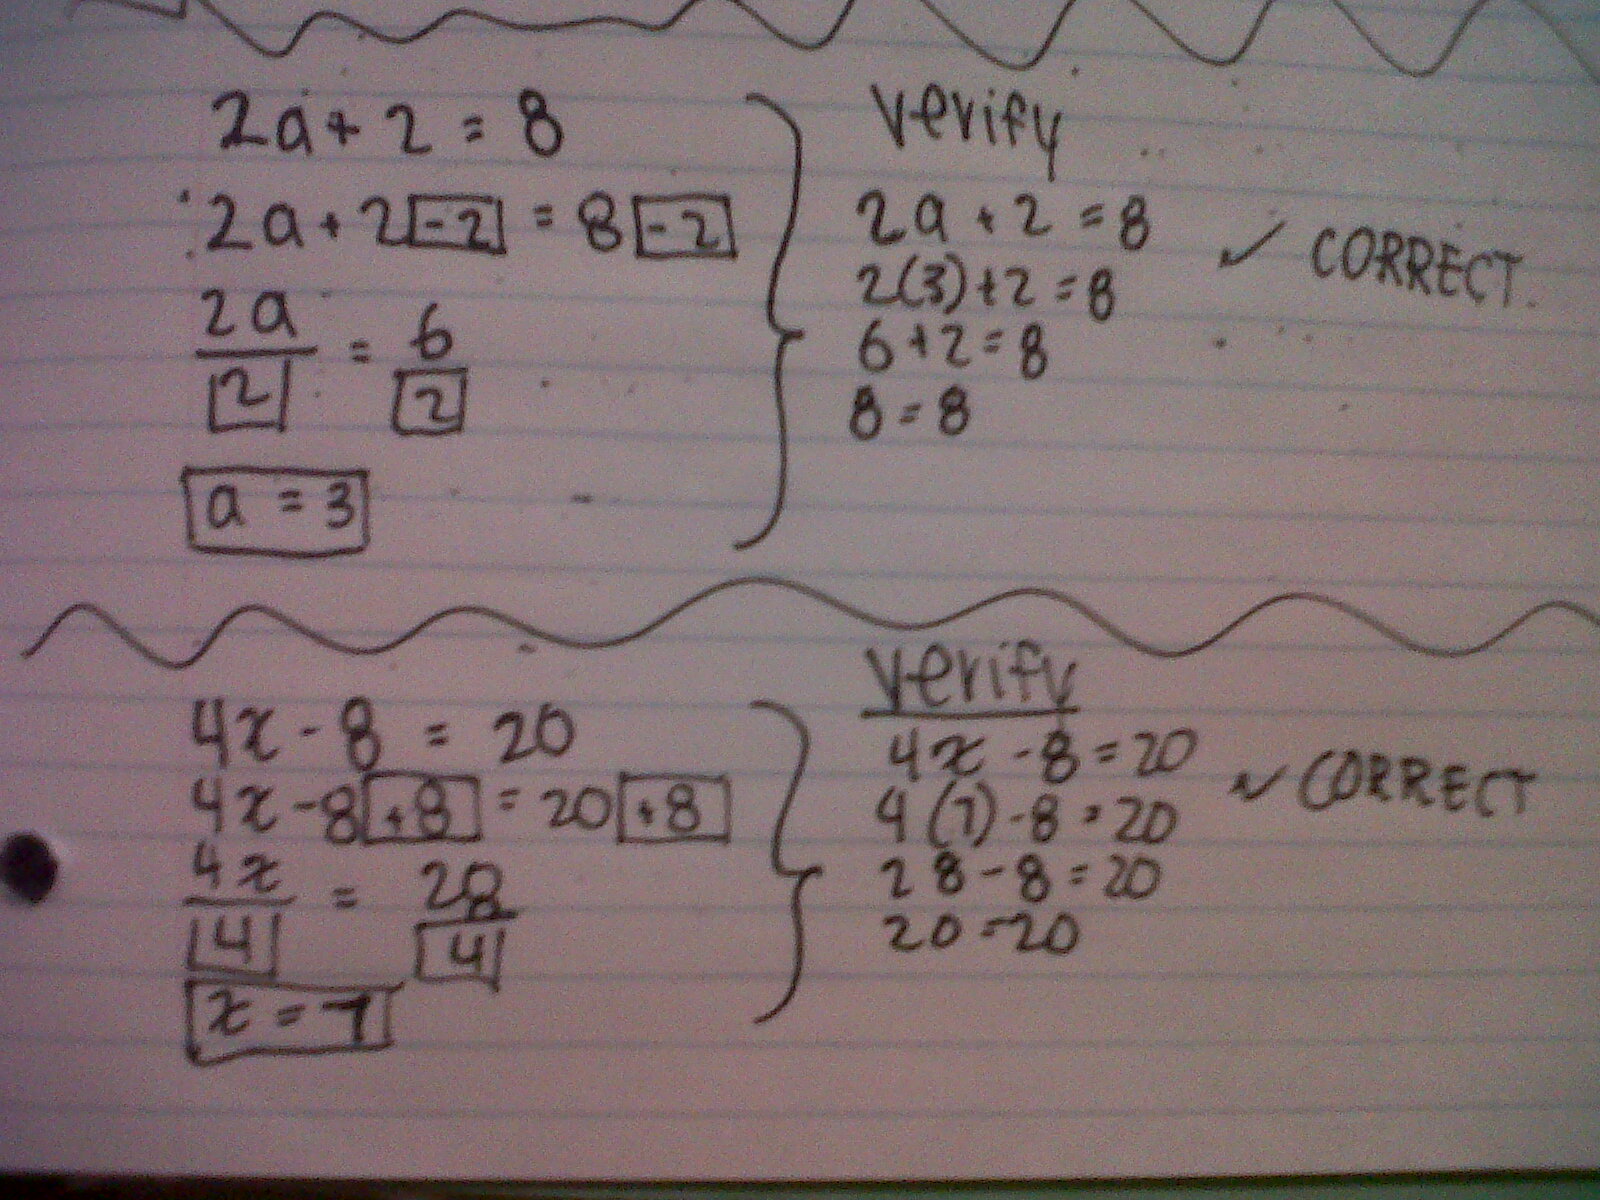 2a + 2 = 8
2a + 2 -2 = 8 -2
2a/2 = 6/2
a = 3
verify
2a + 2 = 8
2(3) + 2 = 8
6 + 2 = 8
8 = 8
✓ CORRECT.
4x - 8 = 20
4x - 8 +8 = 20 +8
4x/4 = 28/4
x = 7
verify
4x - 8 = 20
4(7) - 8 = 20
28 - 8 = 20
20 = 20
✓ CORRECT